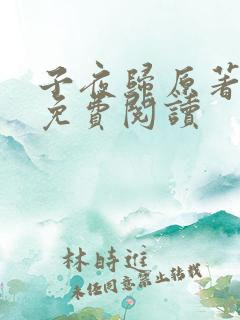 子夜歸原著
免費閱讀
林時進
未經同意禁止轉載